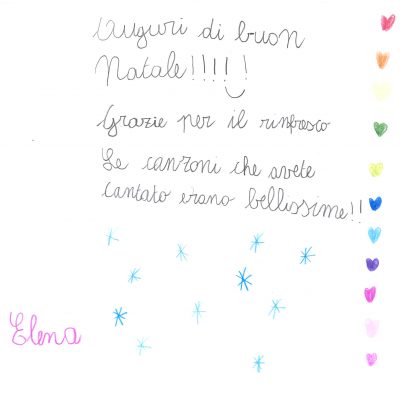 Auguri di buon
Natale!!!!!!
Grazie per il rinfresco
Le canzoni che avete
cantato erano bellissime!!
Elena